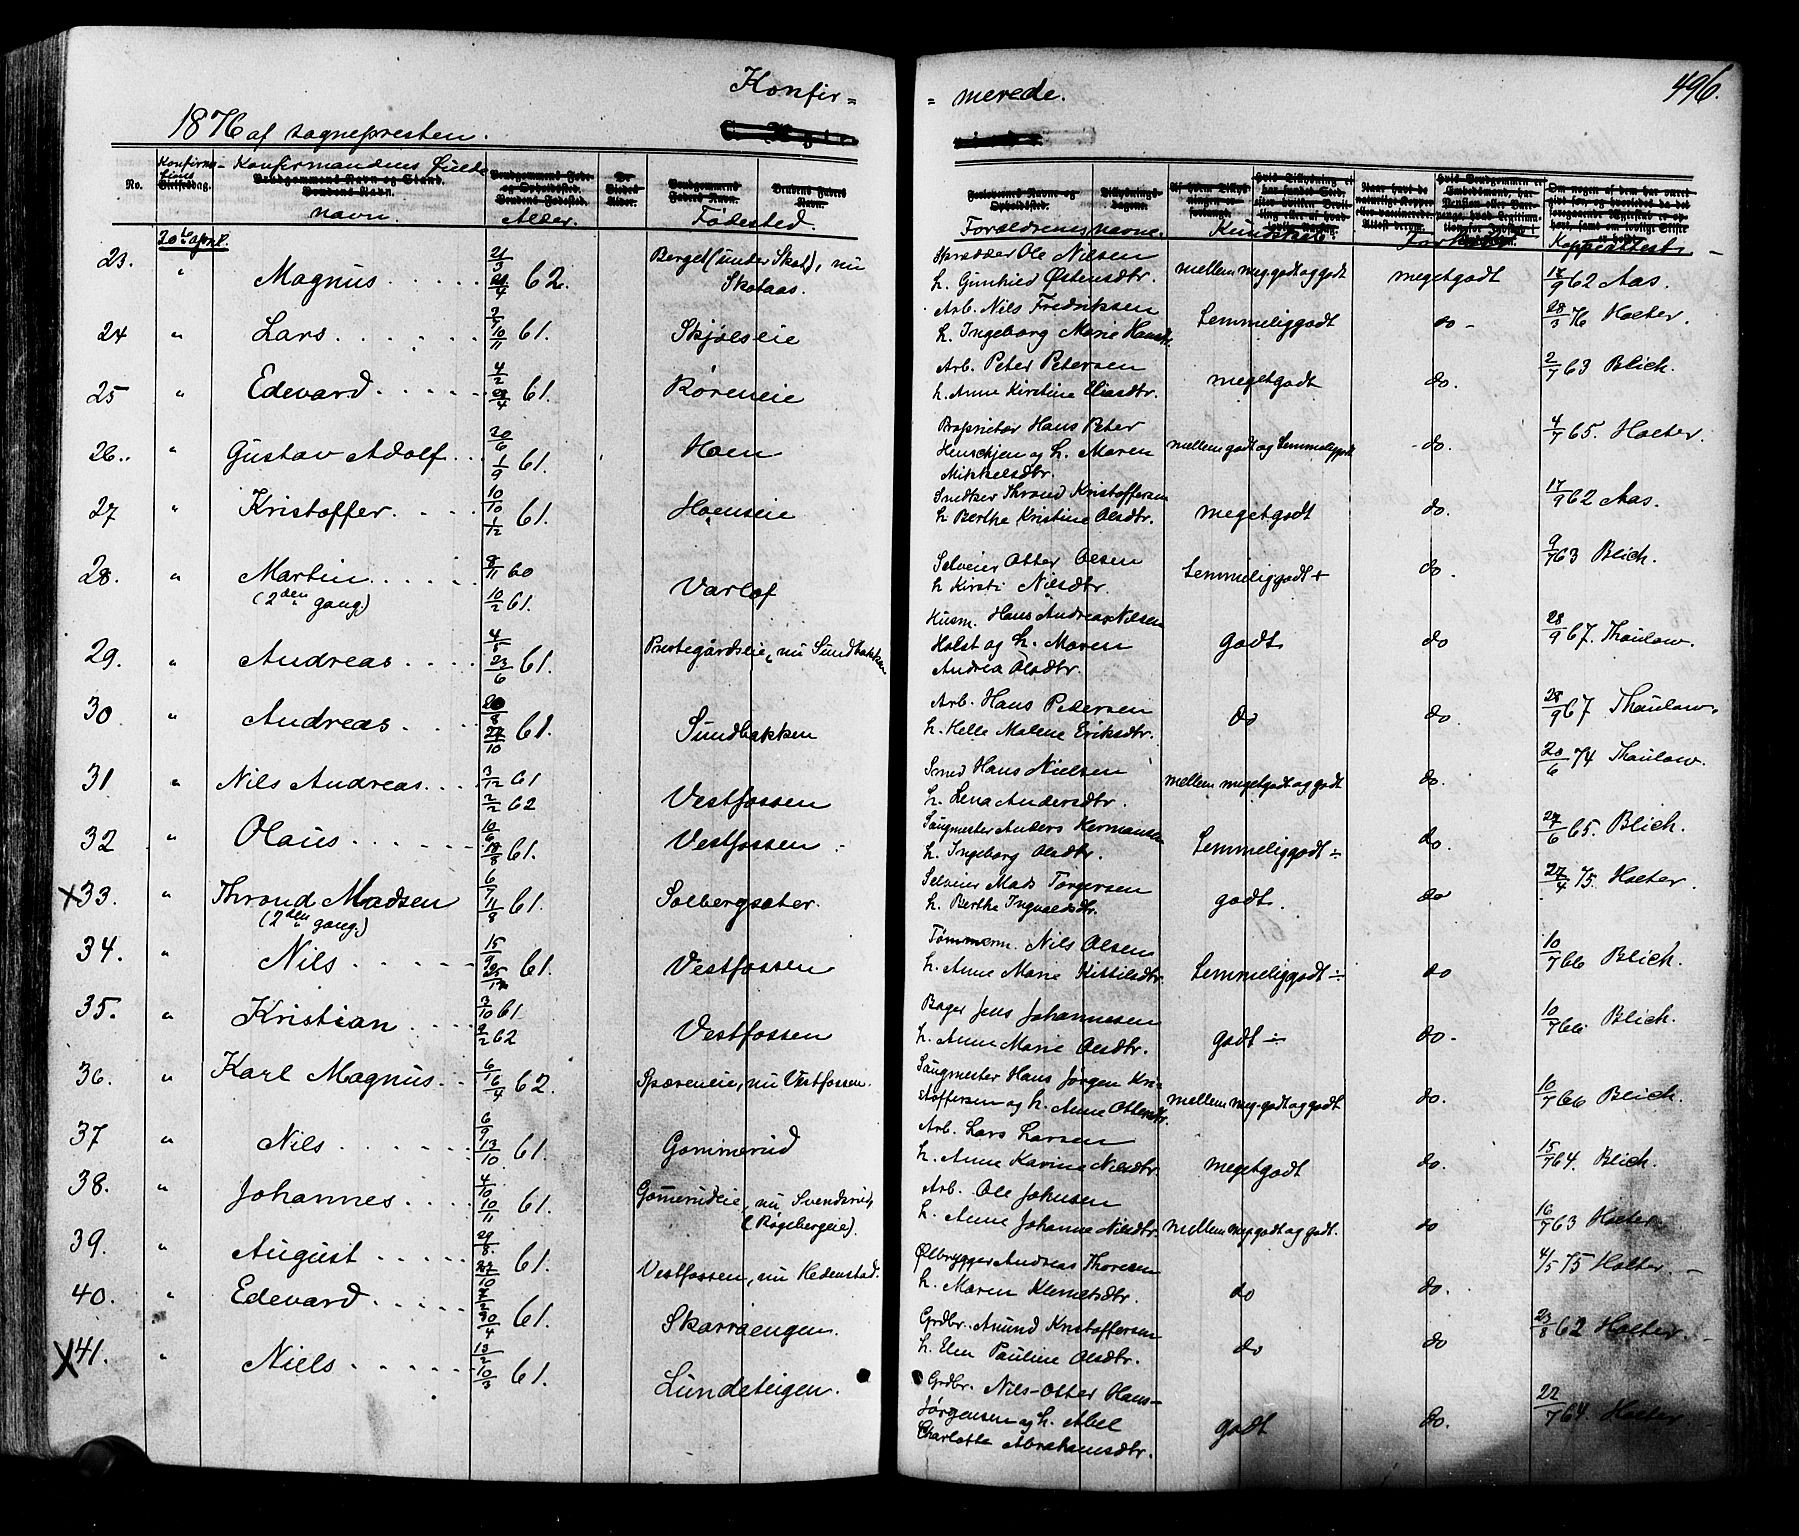 Konfir=
= merede.
496.
1876 af sognepresten.
No.
Konfirma-
tions
Vielsesdag.
Konfirmandens Fulde
Brudgommens Navn og Stand.
Brudens Navn.
navn.
Brudgommens Føde-
og Opholdssted.
Brudens Fødested.
Alder.
De
Viedes
Alder.
Brudgommens
Faders Navn.
Brudens Faders
Navn.
Fødested.
Forlovernes Navne og
Opholdssted.
Tillysnings-
dagene.
Forældrenes navne.
Kundskab.
Forhold.
Koppeattest.
23. 20de april. Magnus 21/3 62. Berget (under Skot), nu Skotaas. Herredder Ole Nilsen h. Gunhild Østensdtr. mellem meg. godt og godt megetgodt 17/9 62 Aas.
24 " Lars 10/11 61. Skjølseie Arb. Nils Fredriksen h. Ingeborg Marie Hansdtr. temmeliggodt do- 28/3 76 Holter.
25 " Edevard 4/2 61. Røreneie Arb. Peter Petersen h. Anne Kirstine Eliasdtr. megetgodt do. 2/7 63 Blich.
26. " Gustav Adolf 20/6 1/9 61. Hoen Proprietær Hans Peter Henschjen og h. Maren Mikkelsdtr. mellem godt og temmeliggodt do. 4/7 65. Holter.
27 " Kristoffer 10/10 1/12 61. Hoenseie Snedker Thrond Kristoffersen h. Berthe Kristine Olsdtr. megetgodt do. 17/9 62 Aas.
28. " Martin (2den gang.) 8/11 60 10/2 61. Varlof Selveier Otter Olsen h. Kirsti Nilsdtr. temmeliggodt+ do. 9/7 63 Blich.
29. " Andreas 4/5 23/6 61. Prestegårdseie, nu Sundbakken Husm. Hans Andreas Nilsen Holst og h. Maren Andrea Olsdtr. godt do 28/9 67. Thaulow.
30 " Andreas 20/8 27/10 61. Sundbakken Arb. Hans Pedersen h. Helle Malene Eriksdtr. do do. 28/9 67 Thaulow.
31 " Nils Andreas 3/12 61 2/2 62 Vestfossen Smed Hans Nielsen h. Lena Andersdtr. mellem megetgodt og godt do. 20/6 74 Thaulow.
32 " Olaus 10/6 18/8 61. Vestfossen Saugmester Anders Hermansen h. Ingeborg Olsdtr. temmeliggodt ÷ do. 27/6 65. Blich.
x33. " Thrond Madsen (2den gang.) 6/7 11/8 61. Solbergsæter. Selveier Mads Torgersen h. Berthe Ingvaldsdtr. godt. do 27/4 75. Holter.
34. " Nils 15/9 61. Vestfossen Tømmerm. Nils Olsen h. Anne Marie Kittilsdtr. temmeliggodt ÷ do 10/7 66 Blich.
35. " Kristian 3/10 61 2/2 62 Vestfossen Bager Jens Johannesen h. Anne Marie Olsdtr. godt ÷ do. 10/7 66. Blich.
36. " Karl Magnus 6/1 16/4 62. Spæreneie, nu Vestfossen. Saugmester Hans Jørgen Kri- stoffersen og h. Anne Ottersdtr. mellem meg. godt og godt do. 10/7 66 Blich.
37 " Nils 6/9 13/10 61. Gommerud Arb. Lars Larsen h. Anne Karine Nilsdtr. megetgodt do. 15/7 64. Blich.
38. " Johannes 4/10 10/11 61. Gomerudeie, nu Svendsrud, (Røgebergeie). Arb. Ole Johnsen h. Anne Johanne Nilsdtr. mellem meg. godt og godt. do 16/7 63 Holter.
39. " August 29/8 27/10 61. Vestfossen, nu Hedenstad. Ølbrygger Andreas Thoresen h. Maren Klemetsdtr. do do. 4/5 75 Holter.
40. " Edevard 61. Skarraengen. Grdbr. Amund Kristoffersen h. Elen Pauline Olsdtr. do do 23/8 62 Holter.
x41. " Niels 13/2 10/3 61. Lundeteigen. Grdbr. Nils-Otter Hans- Jørgensen og h. Abel Charlotte Abrahamsdtr. godt do. 22/7 64. Holter